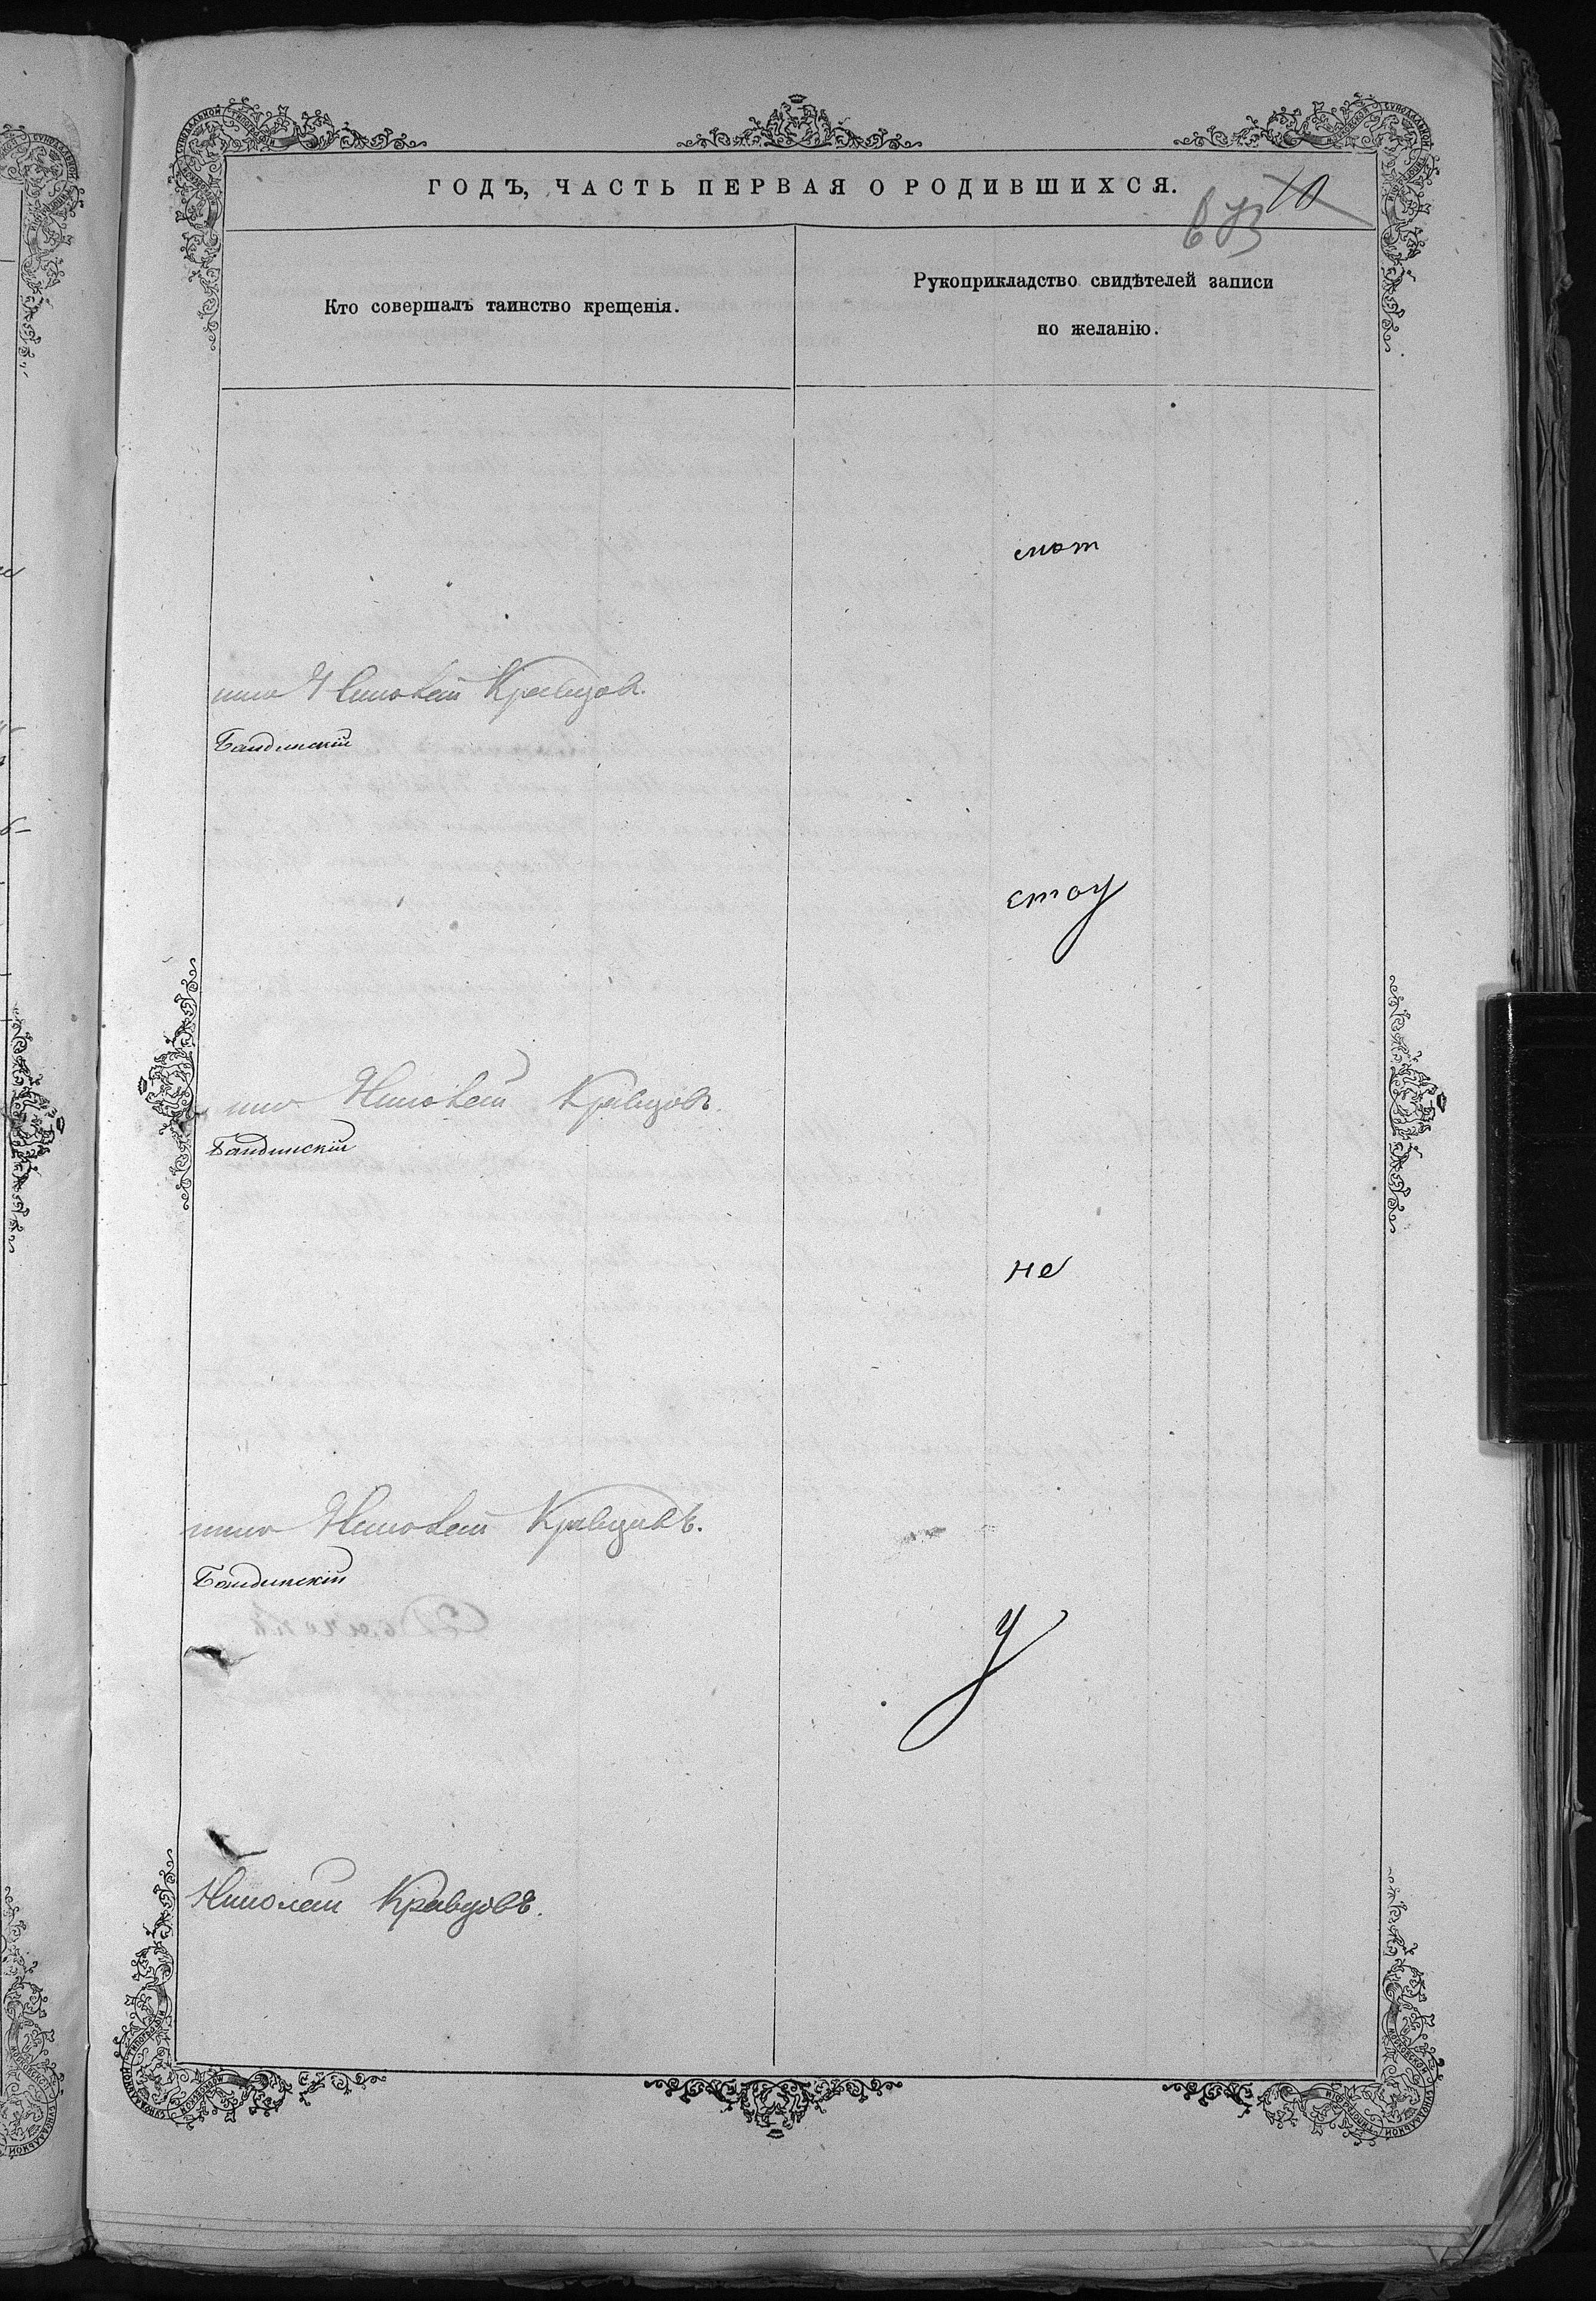 ГОДЪ, ЧАСТЬ ПЕРВАЯ О РОДИВШИХСЯ.
10
Кто совершалъ таинство крещенія.
Рукоприкладство свидѣтелей записи
по желанію.
Николай Кравцовъ.
Бандинскій
стоу
Николай Кравцовъ.
Бандинскій
не
Николай Кравцовъ.
Бандинскій
у
Николай Кравцовъ.